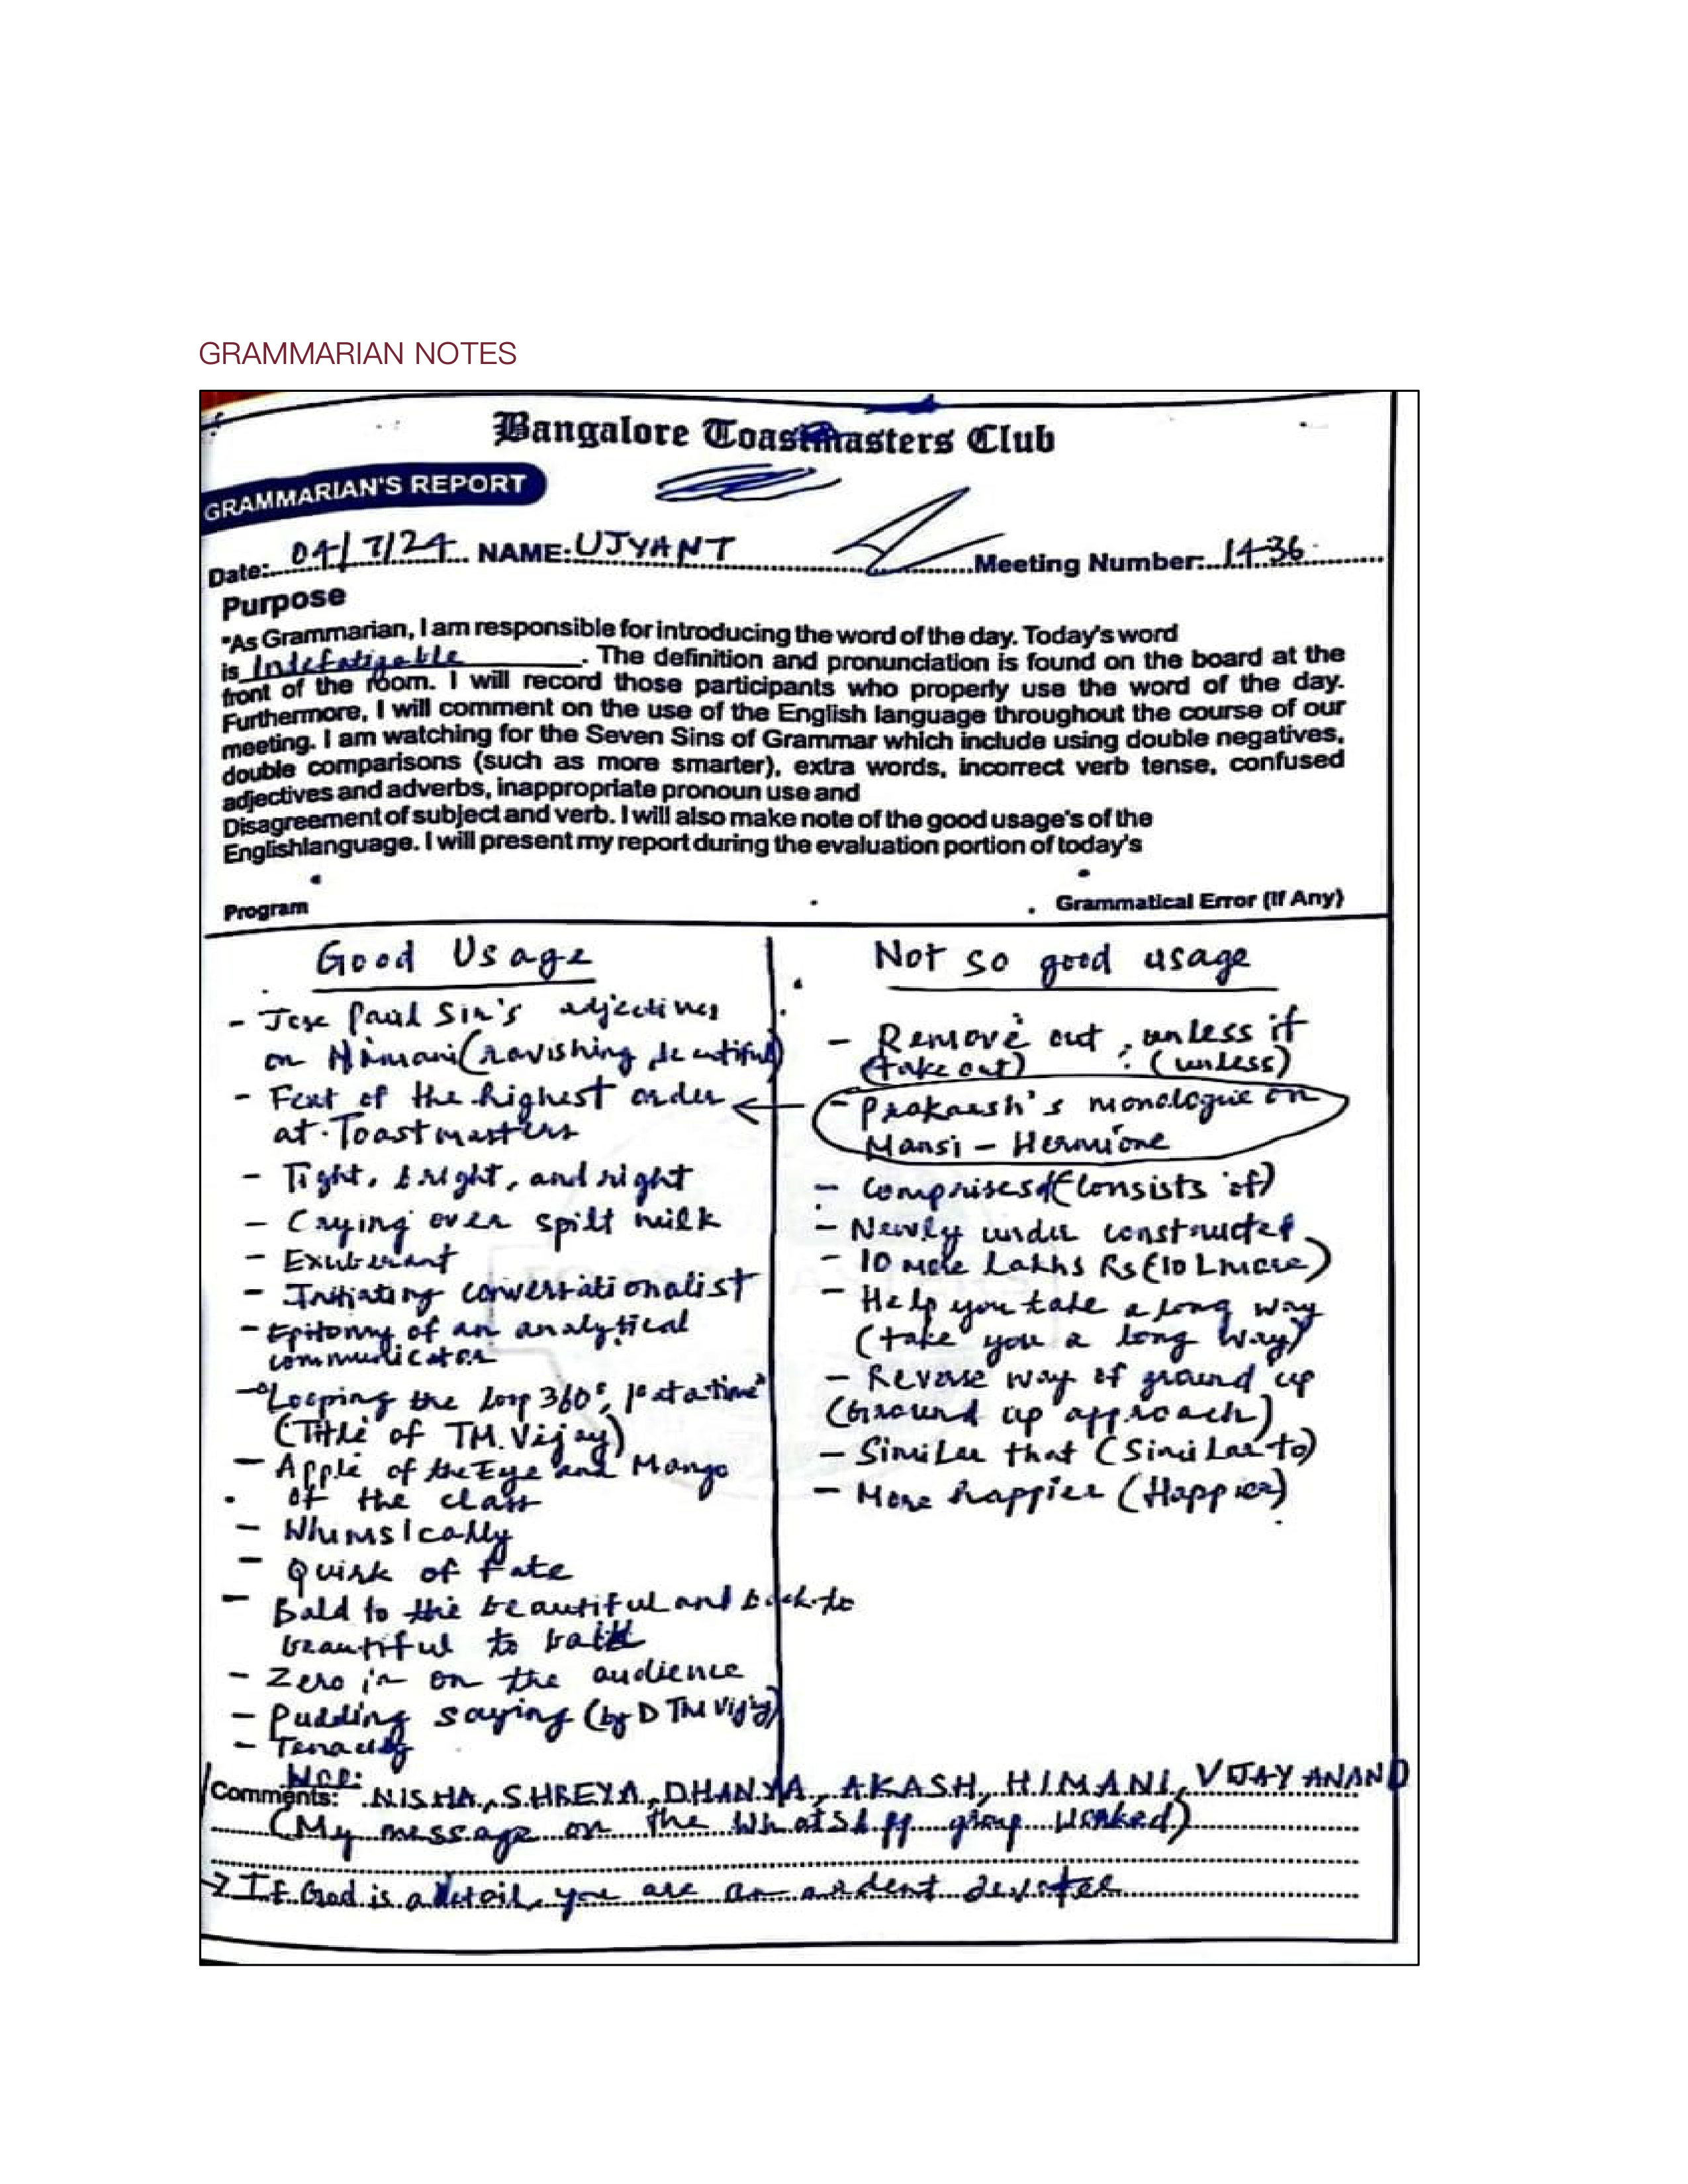 GRAMMARIAN NOTES
Bangalore Toastmasters Club
GRAMMARIAN'S REPORT
Date: 04/7/24 NAME: UJYANT Meeting Number: 1436
Purpose
"As Grammarian, I am responsible for introducing the word of the day. Today's word
is Indefatigable. The definition and pronunciation is found on the board at the
front of the room. I will record those participants who properly use the word of the day.
Furthermore, I will comment on the use of the English language throughout the course of our
meeting. I am watching for the Seven Sins of Grammar which include using double negatives,
double comparisons (such as more smarter), extra words, incorrect verb tense, confused
adjectives and adverbs, inappropriate pronoun use and
Disagreement of subject and verb. I will also make note of the good usage's of the
Englishlanguage. I will present my report during the evaluation portion of today's
Program
Grammatical Error (If Any)
Good Usage
- Jose Paul Sir's adjectives
on Himani (ravishing, beautiful)
- Feat of the highest order
at Toastmasters
- Tight, bright, and right
- Crying over spilt milk
- Exuberant
- Initiating conversationalist
- Epitomy of an analytical
communicator
- "Looping the loop 360°, 1° at a time"
(Title of TM. Vijay)
- Apple of the Eye and Mango
of the class
- Whimsically
- Quirk of fate
- Bald to the beautiful and back to
beautiful to bald
- Zero in on the audience
- Pudding saying (by DTM Vijay)
- Tenacity
Not so good usage
- Remove out, unless if
(take out) (unless)
- Prakaash's monologue on
Mansi - Hermione
- Comprises of (Consists of)
- Newly under constructed
- 10 more Lakhs Rs (10 L more)
- Help you take a long way
(take you a long way)
- Reverse way of ground up
(Ground up approach)
- Similar that (Similar to)
- More happier (Happier)
Comments: WOD: NISHA, SHREYA, DHANYA, AKASH, HIMANI, VIJAY ANAND
(My message on the WhatsApp group worked)
→ If God is a detail, you are an ardent devotee